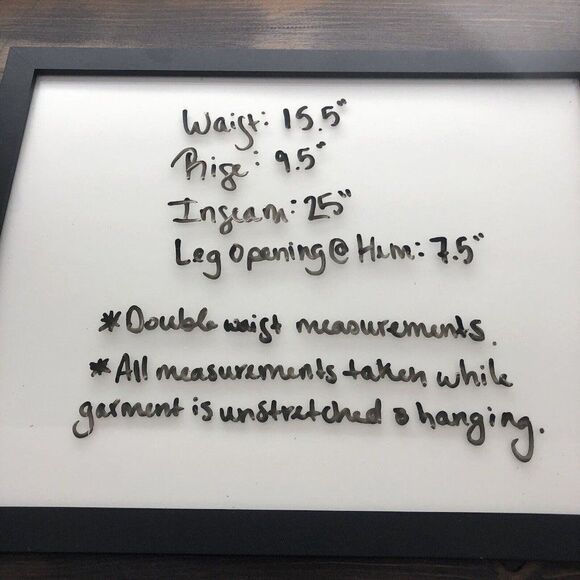 Waist: 15.5"
Rise: 9.5"
Inseam: 25"
Leg Opening @ Hem: 7.5"
*Double waist measurements.
*All measurements taken while
garment is unstretched & hanging.